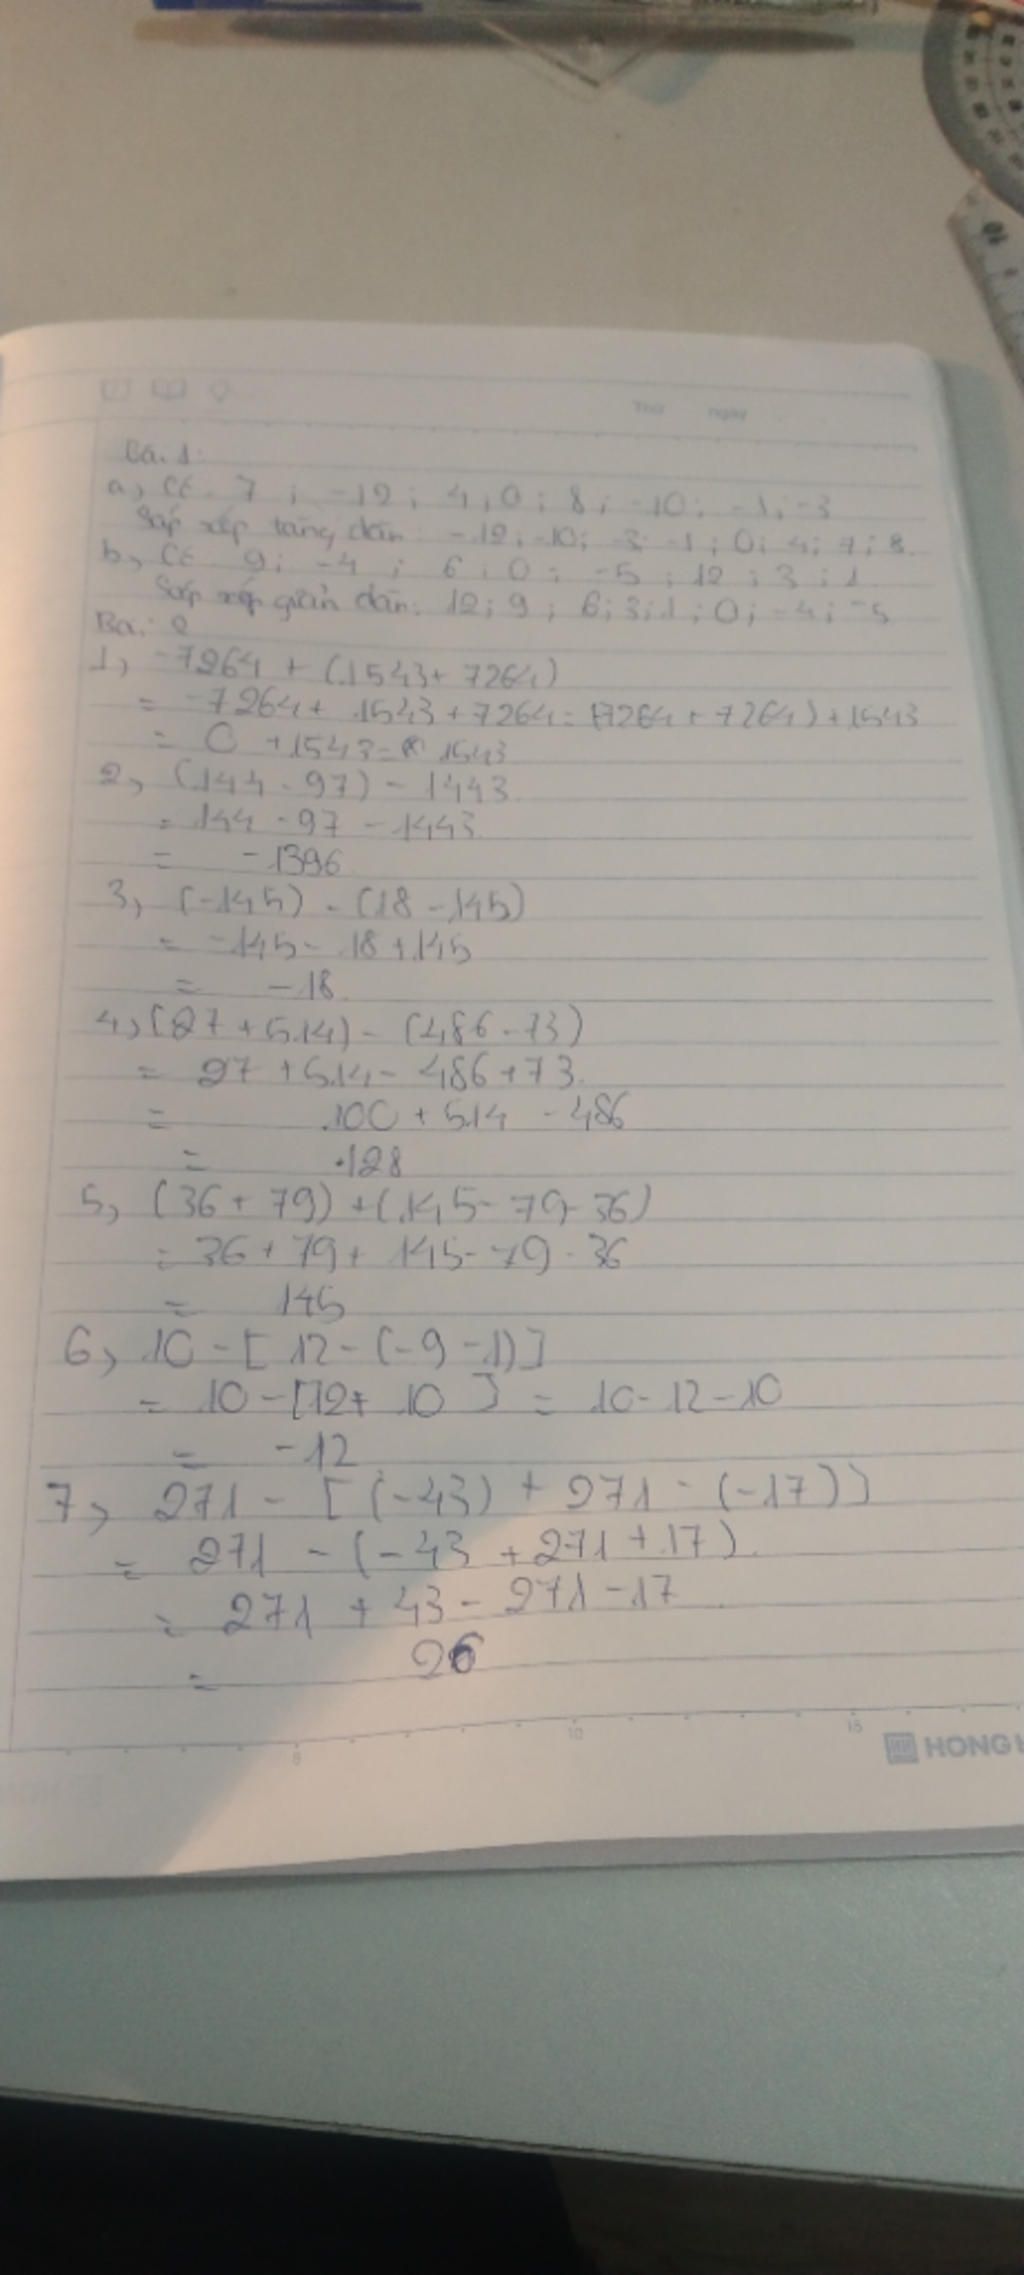 Thứ ngày
Bài 1:
a, CE. 7 ; -12 ; 4 ; 0 ; 8 ; -10 ; -1 ; -3
Sắp xếp tăng dần: -12 ; -10 ; -3 ; -1 ; 0 ; 4 ; 7 ; 8.
b, CE. 9 ; -4 ; 6 ; 0 ; -5 ; 12 ; 3 ; 1
Sắp xếp giản dần: 12 ; 9 ; 6 ; 3 ; 1 ; 0 ; -4 ; -5
Bài 2
1, -7264 + (1543 + 7264)
= -7264 + 1543 + 7264 = (7264 + 7264) + 1543
= 0 + 1543 = 1543
2, (144 - 97) - 1443
= 144 - 97 - 1443
= -1396
3, (-145) - (18 - 145)
= -145 - 18 + 145
= -18
4, (27 + 514) - (486 - 73)
= 27 + 514 - 486 + 73
= 100 + 514 - 486
= 128
5, (36 + 79) + (145 - 79 - 36)
= 36 + 79 + 145 - 79 - 36
= 145
6, 10 - [12 - (-9 - 1)]
= 10 - [12 + 10] = 10 - 12 - 10
= -12
7, 271 - [(-43) + 271 - (-17)]
= 271 - (-43 + 271 + 17).
= 271 + 43 - 271 - 17
= 26
5 10 15
HONG